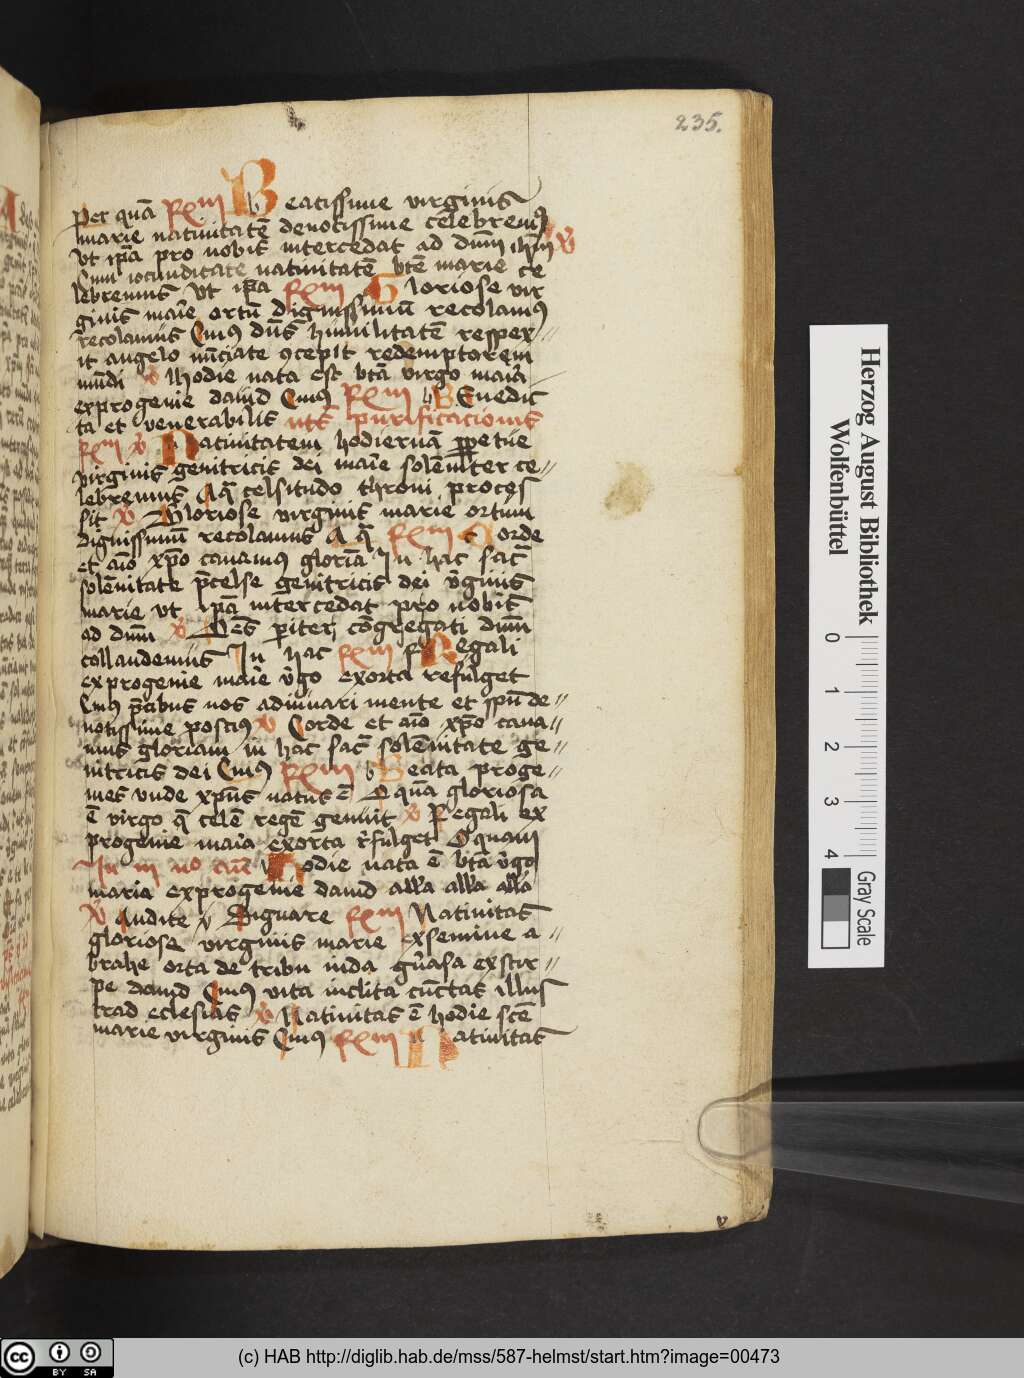 235.
Per quā Rm Beatissime virginis
marie natiuitatē deuotissime celebremꝰ
vt ip̄a pro nobis intercedat ad dn̄m ihm̄ v̄
Cum iocunditate natiuitatē btē marie ce
lebremus Vt ip̄a Rm Gloriose vir
ginis marīe ortū dignissimū recolamꝰ
recolamus Cuiꝰ dn̄s humilitatē respex//
it angelo nūciate ꝯcepit redemptorem
mūdi v̄ Hodie nata est btā virgo maīa
ex progenie dauid Cuiꝰ Rm Benedic
ta et venerabilis purificacionis
Rm v̄ Natiuitatem hodiernā ꝑpetue
virginis genitricis dei marīe solēniter ce//
lebremus A q̄ celsitudo throni proces
sit v̄ Gloriose virginis marie ortum
dignissimū recolamus A q̄ Rm Corde
et aīo xp̄o canamꝰ gloriā In hac sac̄
solēnitate p̄celse genitricis dei v̄ginis
marie vt ip̄a intercedat pro nobis
ad dn̄m v̄ pariter cōgregati dn̄m
collaudemus In hac Rm Regali
ex progenie marīe v̄go exorta refulget
Cuiꝰ p̄cibus nos adiuuari mente et spū de//
uotissime poscimꝰ v̄ Corde et aīo xp̄o cana//
mus gloriam in hac sac̄ solēnitate ge//
nitricis dei Cuiꝰ Rm Beata proge//
nies vnde xp̄us natus ē O quā gloriosa
ē virgo q̄ celē regē genuit v̄ Regali ex
progenie maīa exorta r̄fulget O quam
In iii no Hodie nata ē btā v̄go
maria ex progenie dauid all̄a all̄a all̄a
v̄ Audite v Dignare Rm Natiuitas
gloriose virginis marie ex semine a//
brahe orta de tribu iuda ex stir//
pe dauid Cuiꝰ vita inclita cūctas illus
trad eclesias v̄ Natiuitas ē hodie scē
marie virginis Cuiꝰ Rm Natiuitas
Herzog August Bibliothek
Wolfenbüttel
0 1 2 3 4
Gray Scale
cc BY SA
(c) HAB http://diglib.hab.de/mss/587-helmst/start.htm?image=00473